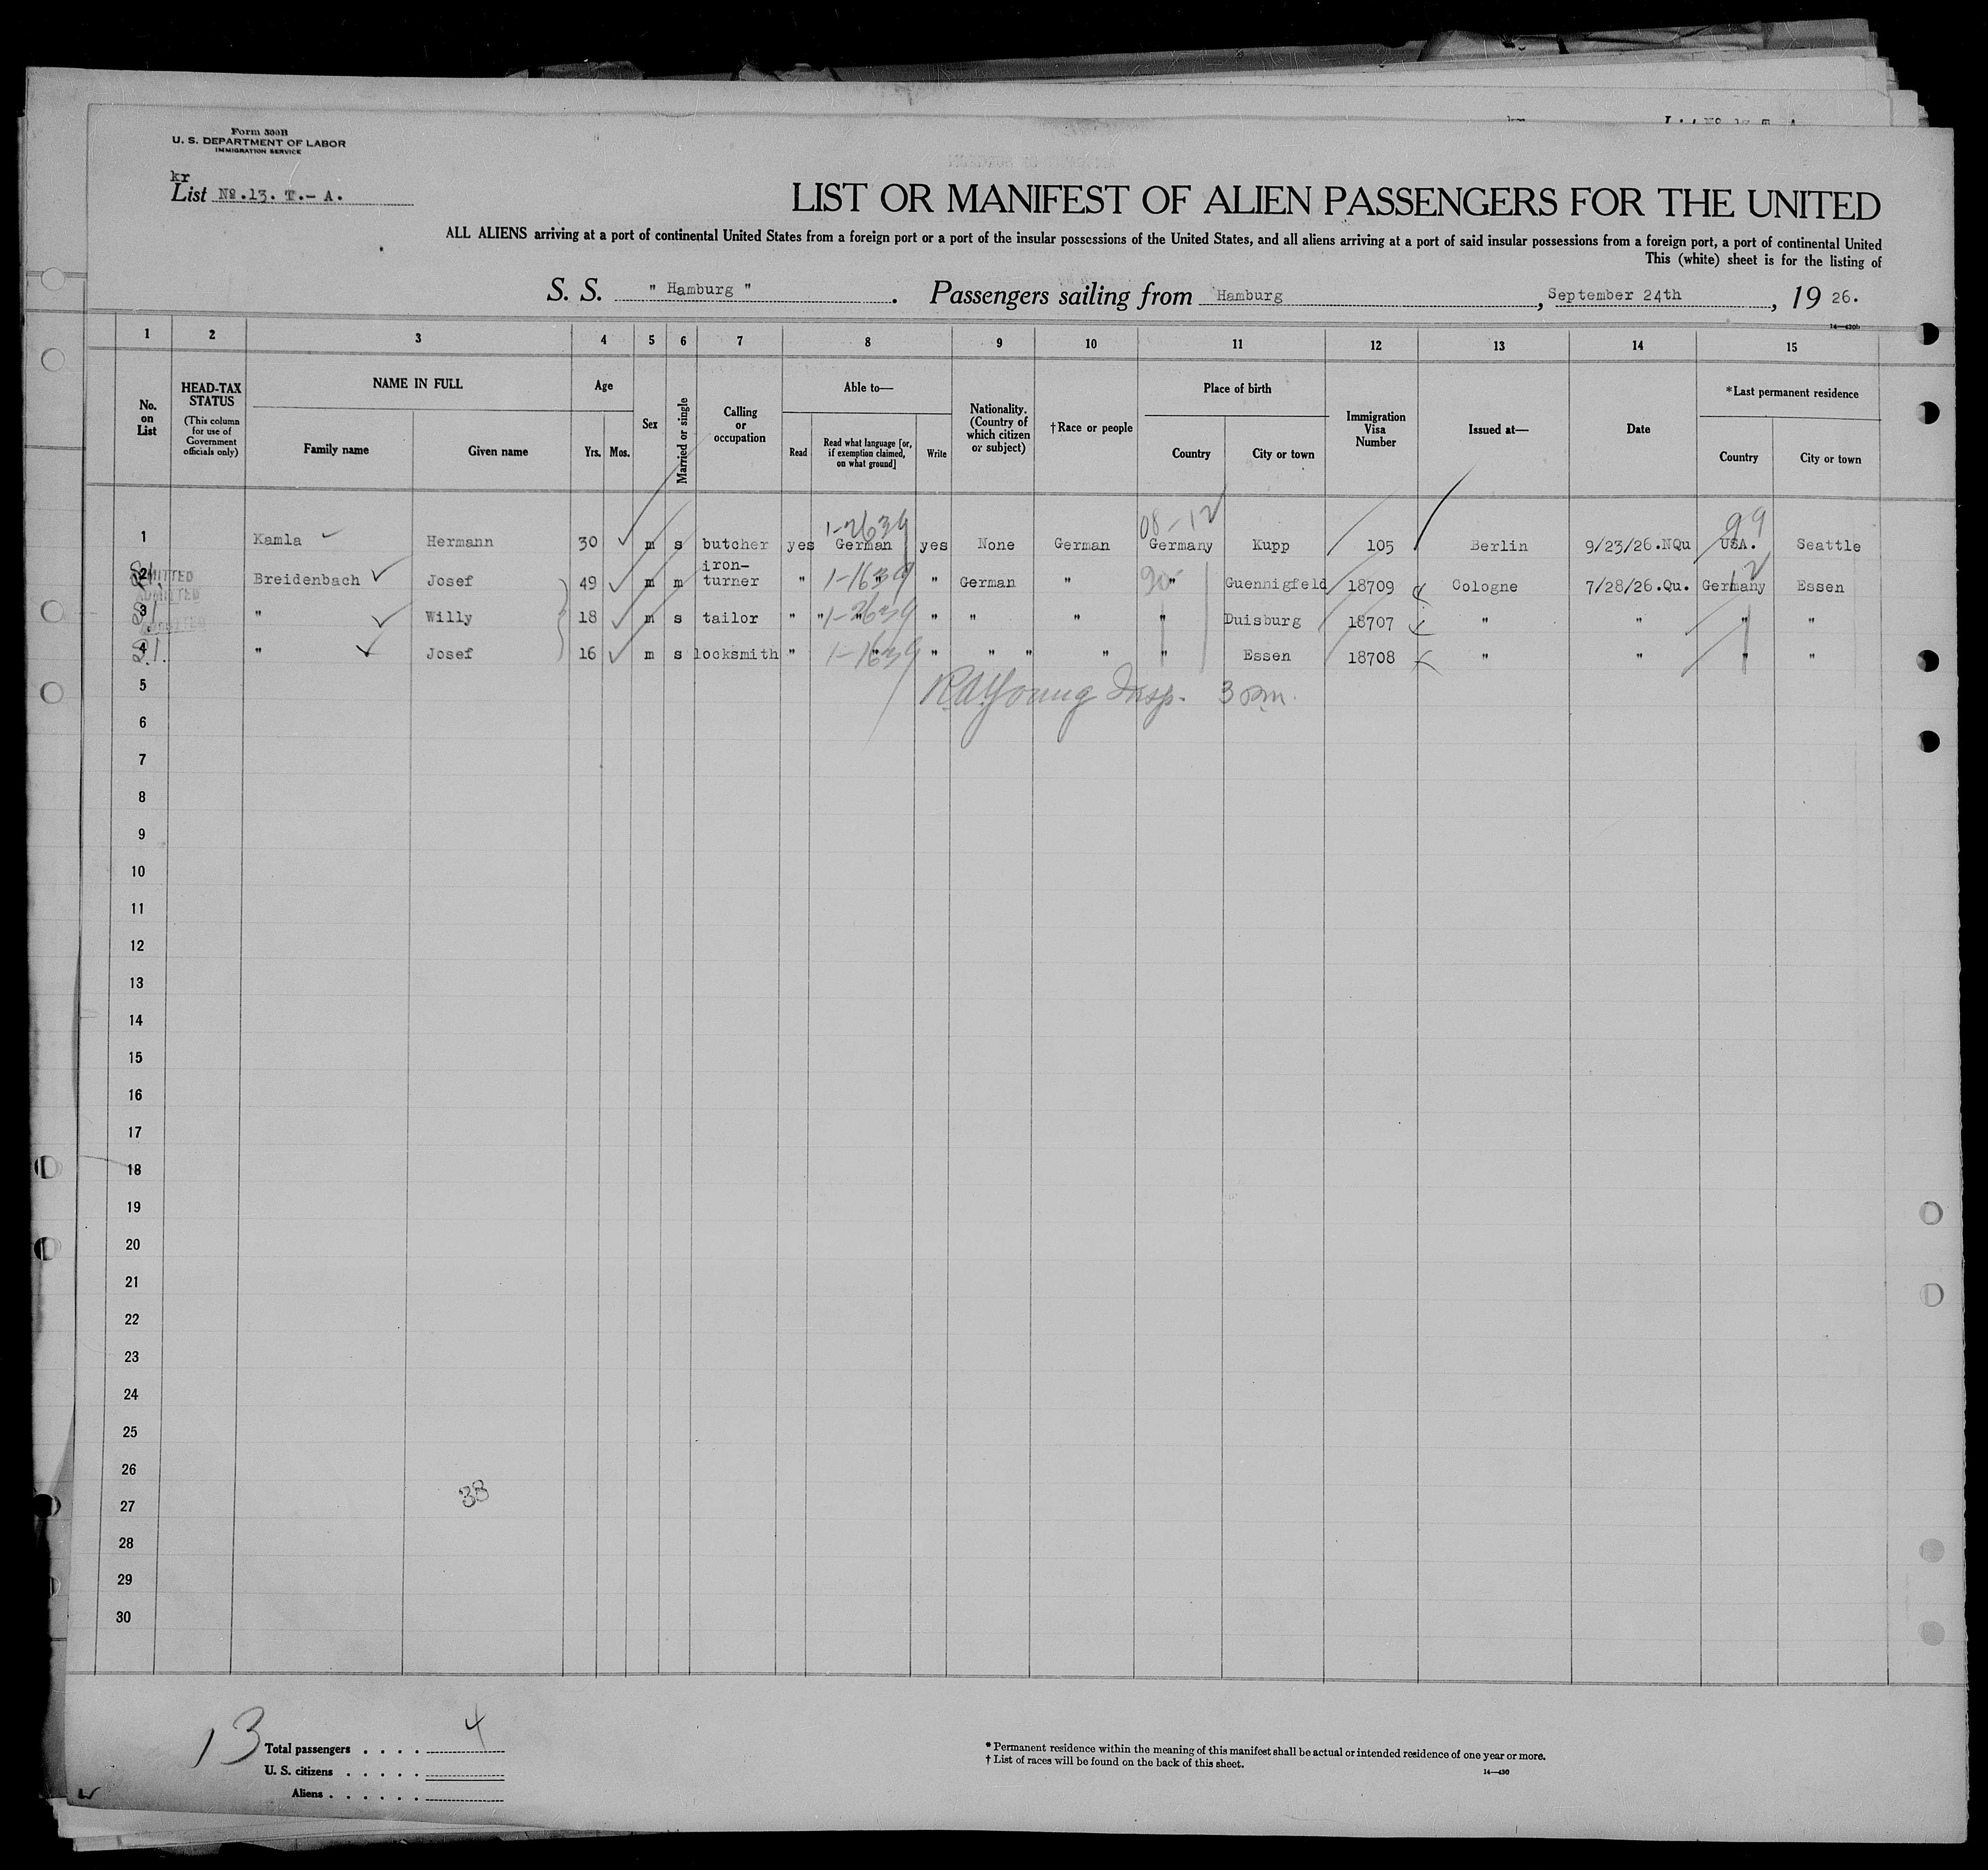 Form 500B
U. S. DEPARTMENT OF LABOR
IMMIGRATION SERVICE
kr
List No.13. T.- A.
LIST OR MANIFEST OF ALIEN PASSENGERS FOR THE UNITED
ALL ALIENS arriving at a port of continental United States from a foreign port or a port of the insular possessions of the United States, and all aliens arriving at a port of said insular possessions from a foreign port, a port of continental United
This (white) sheet is for the listing of
S. S. " Hamburg " . Passengers sailing from Hamburg , September 24th , 19 26.
1 2 3 4 5 6 7 8 9 10 11 12 13 14 15
No. on List
HEAD-TAX STATUS (This column for use of Government officials only)
NAME IN FULL Family name Given name
Age Yrs. Mos.
Sex
Married or single
Calling or occupation
Able to— Read Read what language [or, if exemption claimed, on what ground] Write
Nationality. (Country of which citizen or subject)
†Race or people
Place of birth Country City or town
Immigration Visa Number
Issued at—
Date
*Last permanent residence Country City or town
1-2639 08-12 99
1 Kamla Hermann 30 m s butcher yes German yes None German Germany Kupp 105 Berlin 9/23/26.NQu USA. Seattle
ADMITTED
2 Breidenbach Josef 49 m m iron-turner " 1-1639 " " German " " Guennigfeld 18709 Cologne 7/28/26.Qu. Germany Essen
ADMITTED
3 " Willy 18 m s tailor " " 1-2639 " " " " " Duisburg 18707 " " " "
4 " Josef 16 m s locksmith " 1-1639 " " " " " " Essen 18708 " " " "
5 R.A.Young Insp. 3 pm.
6
7
8
9
10
11
12
13
14
15
16
17
18
19
20
21
22
23
24
25
26
38
27
28
29
30
13
Total passengers . . . . 4
U. S. citizens . . . . .
Aliens . . . . . .
* Permanent residence within the meaning of this manifest shall be actual or intended residence of one year or more.
† List of races will be found on the back of this sheet.
14—430